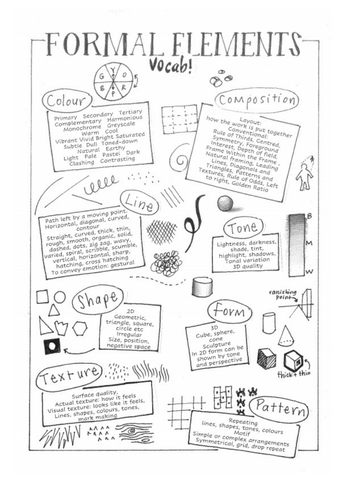 FORMAL ELEMENTS
Vocab!
G Y
O
B
Colour
Primary Secondary Tertiary
Complementary Harmonious
Monochrome Greyscale
Warm Cool
Vibrant Vivid Bright Saturated
Subtle Dull Toned-down
Natural Earthy
Light Pale Pastel Dark
Clashing Contrasting
Composition
Layout:
how the work is put together
Conventional:
Rule of Thirds, Centred,
Symmetry, Foreground
Interest, Depth of field,
Frame within the Frame
Natural framing, Leading
Lines, Diagonals and
Triangles, Patterns and
Textures, Rule of Odds, Left
to right, Golden Ratio
Line
Path left by a moving point,
Horizontal, diagonal, curved,
contour
Straight, curved, thick, thin,
rough, smooth, organic, solid,
dashed, dots, zig zag, wavy,
varied, spiral, scribble, scumble,
vertical, horizontal, sharp
hatching, cross hatching
To convey emotion: gestural
Tone
Lightness, darkness,
shade, tint,
highlight, shadows,
Tonal variation
3D quality
B
M
W
Shape
2D
Geometric,
triangle, square,
circle etc
Irregular
Size, position,
negative space
Form
3D
Cube, sphere,
cone
Sculpture
In 2D form can be
shown by tone
and perspective
vanishing
point
thick + thin
Texture
Surface quality,
Actual texture: how it feels
Visual texture: looks like it feels,
Lines, shapes, colours, tones,
mark making
Pattern
Repeating
lines, shapes, tones, colours
Motif
Simple or complex arrangements
Symmetrical, grid, drop repeat